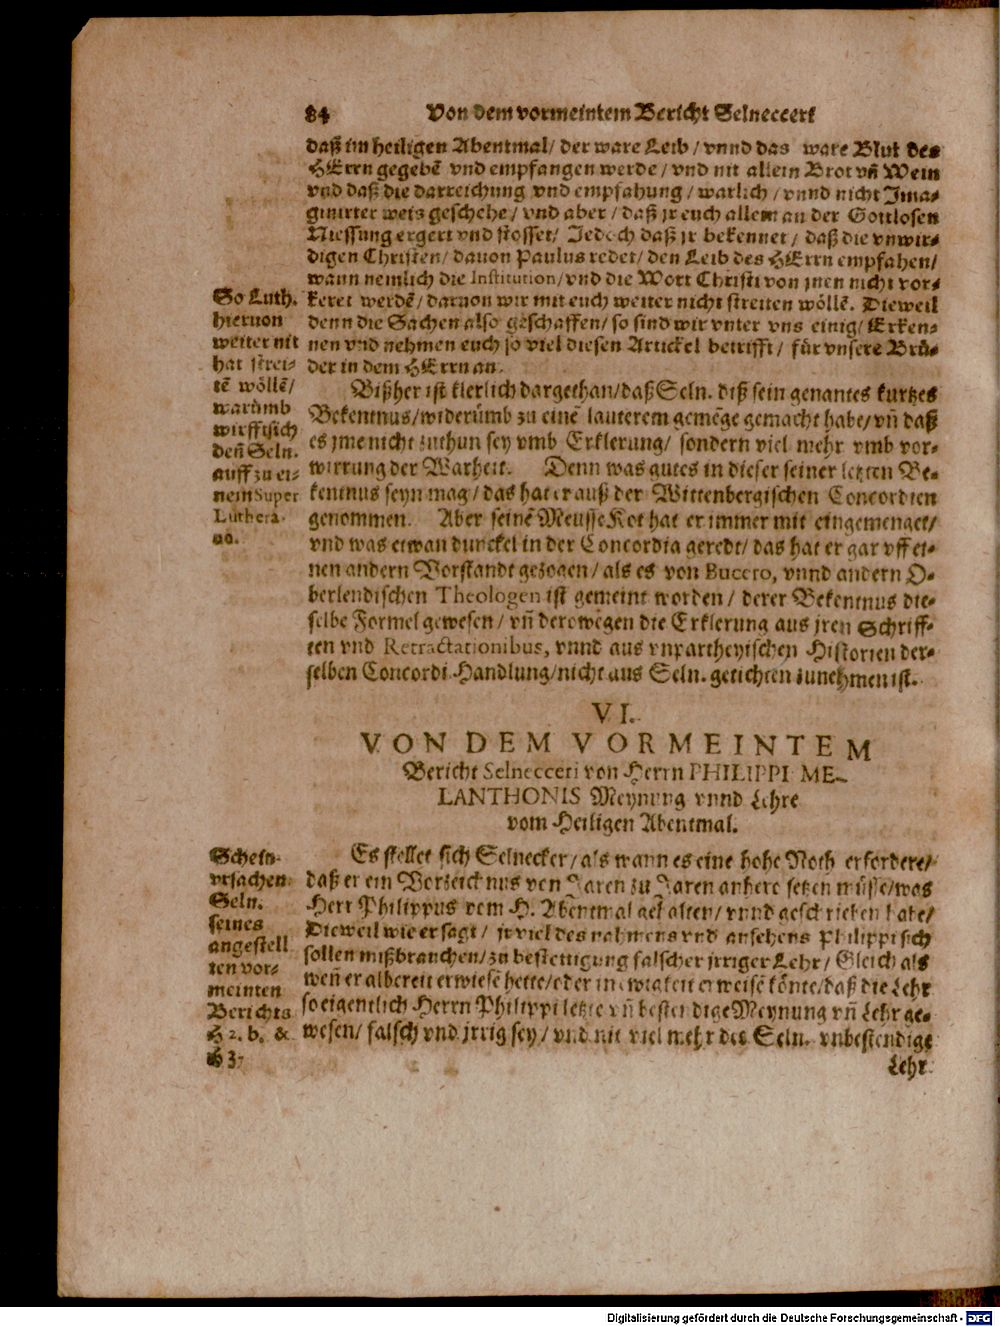 84 Von dem vormeintem Bericht Selnecceri
daß im heiligen Abentmal/ der ware Leib/ vnnd das ware Blut des
HErrn gegebē vnd empfangen werde/ vnd nit allein Brot vñ Wein
vnd daß die darreichung vnd empfahung/ warlich/ vnnd nicht Jma-
ginirter weis geschehe/ vnd aber/ daß jr euch allein an der Gottlosen
Niessung ergert vnd stosset/ Jedoch daß jr bekennet/ daß die vnwir-
digen Christen/ dauon Paulus redet/ den Leib des HErrn empfahen/
wann nemlich die Institution/ vnd die Wort Christi von jnen nicht vor-
keret werdē/ daruon wir mit euch weiter nicht streiten wöllē. Dieweil
denn die Sachen also geschaffen/ so sind wir vnter vns einig/ Erken-
nen vnd nehmen euch so viel diesen Artickel betrifft/ für vnsere Brü-
der in dem HErrn an.
So Luth.
hieruon
weiter nit
hat strei-
tē wöllē/
warümb
wirfft sich
deñ Seln.
auff zu ei-
nem Super
Luthera-
no.
Bißher ist klerlich dargethan/ daß Seln. diß sein genantes kurtzes
Bekentnus/ widerümb zu einē lauterem gemēge gemacht habe/ vñ daß
es jme nicht zuthun sey vmb Erklerung/ sondern viel mehr vmb vor-
wirrung der Warheit. Denn was gutes in dieser seiner letzten Be-
kentnus seyn mag/ das hat er auß der Wittenbergischen Concordien
genommen. Aber seinē MeusseKot hat er immer mit eingemenget/
vnd was etwan dunckel in der Concordia geredt/ das hat er gar vff ei-
nen andern Vorstandt gezogen/ als es von Bucero, vnnd andern O-
berlendischen Theologen ist gemeint worden/ derer Bekentnus die-
selbe Formel gewesen/ vñ derowegen die Erklerung aus jren Schriff-
ten vnd Retractationibus, vnnd aus vnpartheyischen Historien der-
selben Concordi Handlung/ nicht aus Seln. getichten zunehmen ist.
VI.
VON DEM VORMEINTEM
Bericht Selnecceri von Herrn PHILIPPI ME-
LANTHONIS Meynung vnnd Lehre
vom Heiligen Abentmal.
Schein-
vrsachen
Seln.
seines
angestell
ten vor-
meinten
Berichts
H 2. b. &
H 3.
Es stellet sich Selnecker/ als wann es eine hohe Noth erfordere/
daß er ein Vorzeichnus von Jaren zu Jaren anhero setzen müsse/ was
Herr Philippus vom H. Abentmal gehalten/ vnnd geschrieben habe/
Dieweil wie er sagt/ jr viel des nahmens vnd ansehens Philippi sich
sollen mißbrauchen/ zu bestettigung falscher jrriger Lehr/ Gleich als
weñ er albereit erwiesē hette/ oder in ewigkeit erweisē könte/ daß die Lehr
so eigentlich Herrn Philippi letzte vñ bestendige Meynung vñ Lehr ge-
wesen/ falsch vnd jrrig sey/ vnd nit viel mehr des Seln. vnbestendige
Lehr.
Digitalisierung gefördert durch die Deutsche Forschungsgemeinschaft - DFG